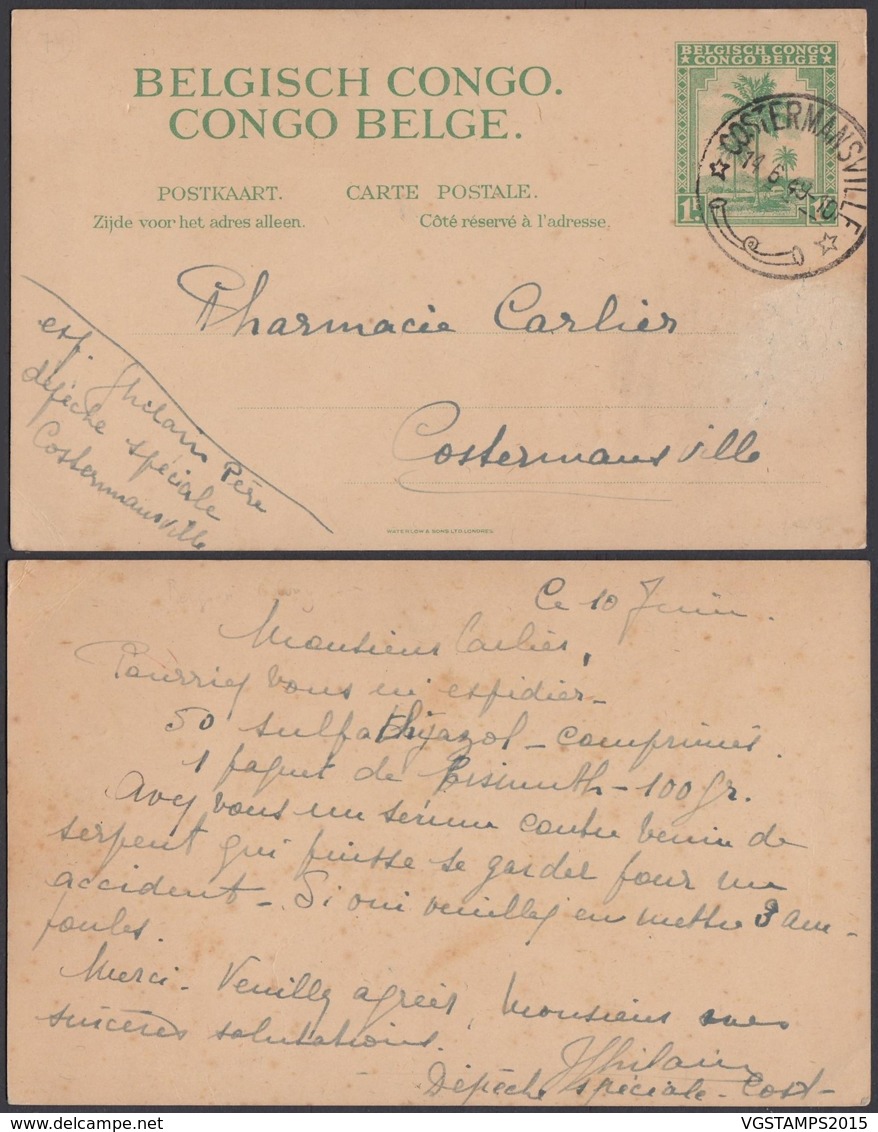 BELGISCH CONGO.
CONGO BELGE.
BELGISCH CONGO
CONGO BELGE
1F
COSTERMANSVILLE
14.6.49
POSTKAART. CARTE POSTALE.
Zijde voor het adres alleen. Côté réservé à l'adresse.
Pharmacie Carlier
Costermansville
exp.
Ghilain Père
dépêche spéciale
Costermansville
WATERLOW & SONS LTD. LONDRES.
Ce 10 Juin.
Monsieur Carlier,
Pourriez vous m'expédier-
50 sulfathiazol - comprimés.
1 paquet de Bismuth - 100 gr.
Avez vous un sérum contre venin de
serpent qui puisse se garder pour un
accident - Si oui veuillez en mettre 3 am-
poules.
Merci - Veuillez agréer, Monsieur mes
sincères salutations.
Ghilain
Dépêche spéciale - Cost-
VGSTAMPS2015